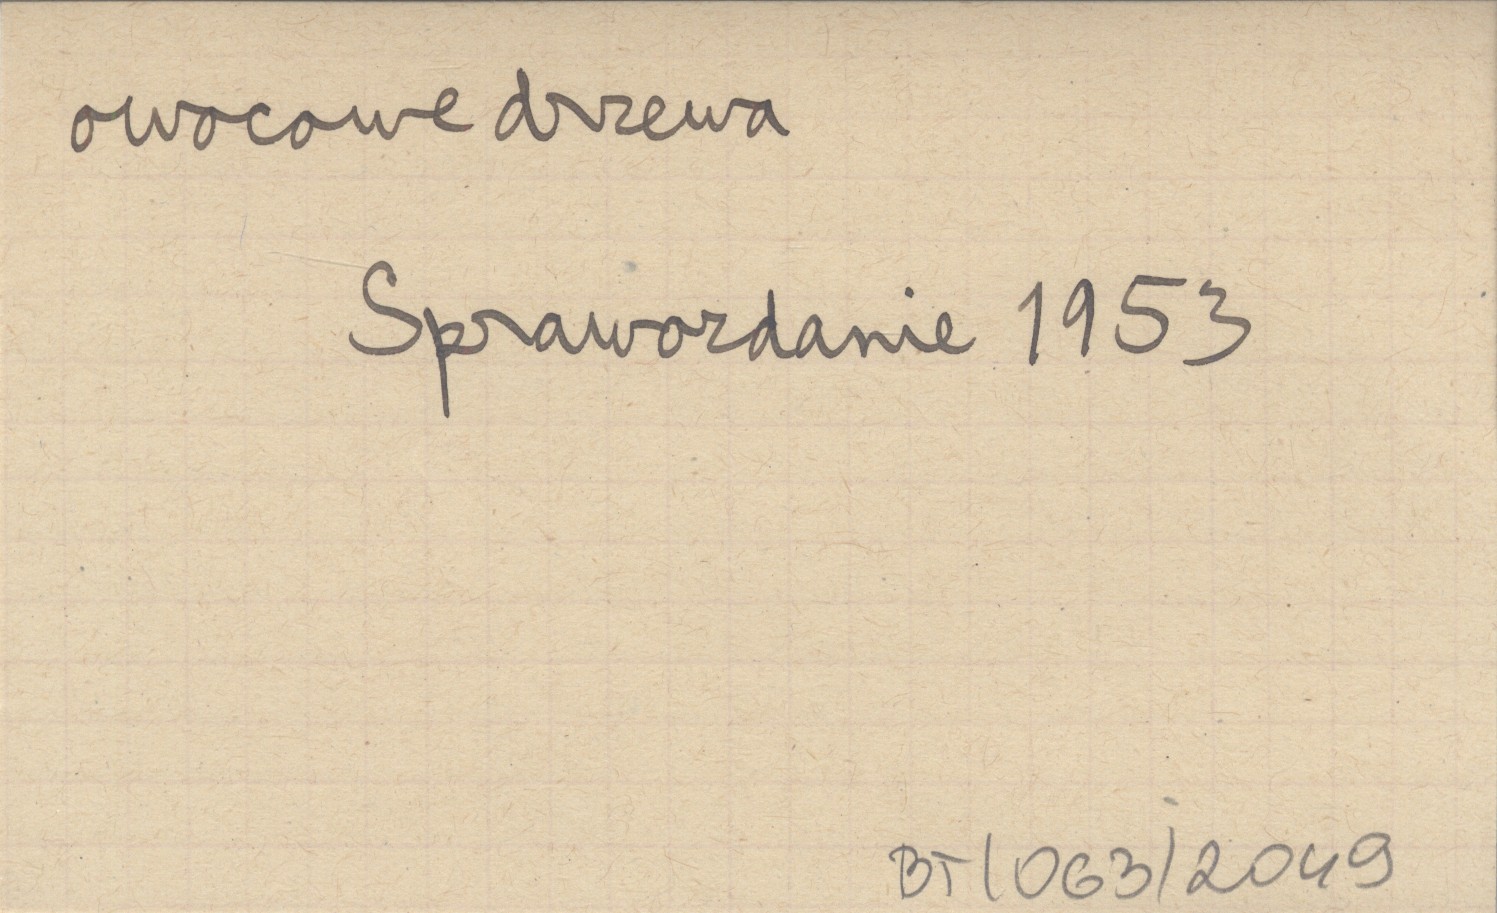 owocowe drzewa
Sprawozdanie 1953
BT/063/2049